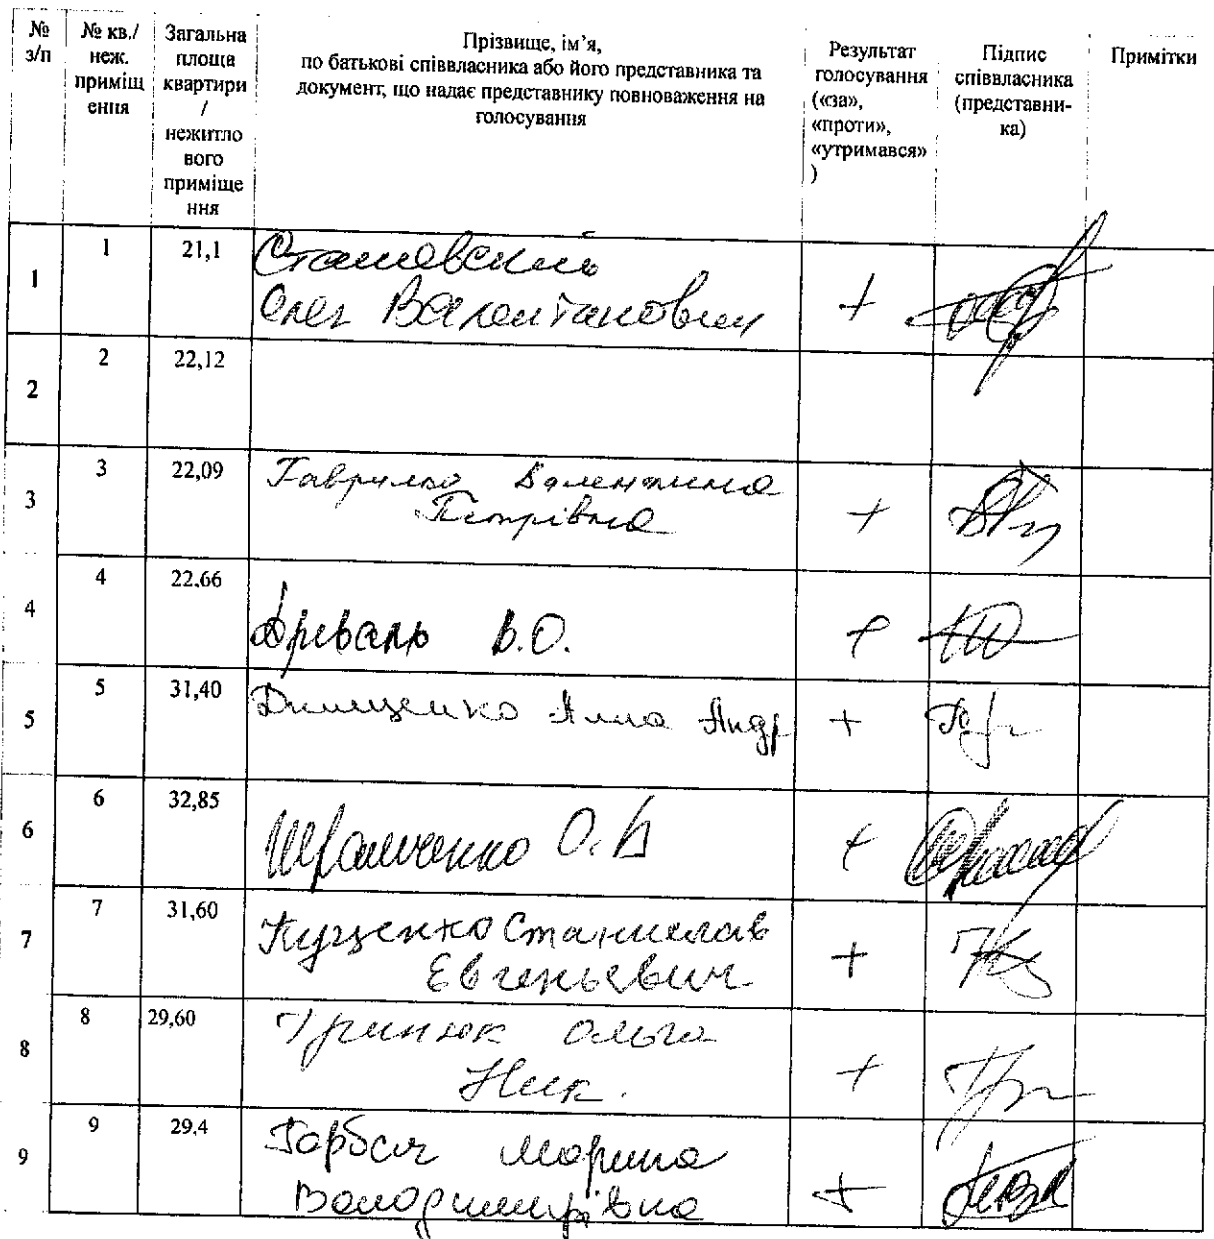 № з/п
№ кв./ неж. приміщ ення
Загальна площа квартири / нежитло вого приміще ння
Прізвище, ім’я,
по батькові співвласника або його представника та
документ, що надає представнику повноваження на
голосування
Результат голосування («за», «проти», «утримався» )
Підпис співвласника (представни- ка)
Примітки
1 1 21,1
Олег Валентинович +
2 2 22,12
3 3 22,09 Гаврилко Валентина
Петрівна +
4 4 22.66
Древаль В.О. +
5 5 31,40
Анна Андр +
6 6 32,85
Шрамченко О.В +
7 7 31,60 Куценко Станислав
Евгеньевич +
8 8 29,60 Гринюк Ольга
Ник. +
9 9 29.4 Марина
Володимирівна +